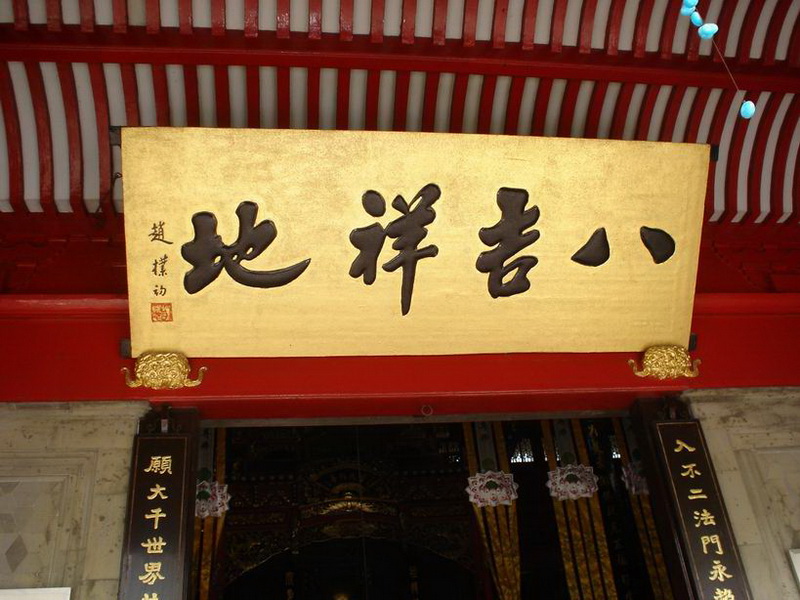 八吉祥地
趙樸初
入不二法門永
願大千世界